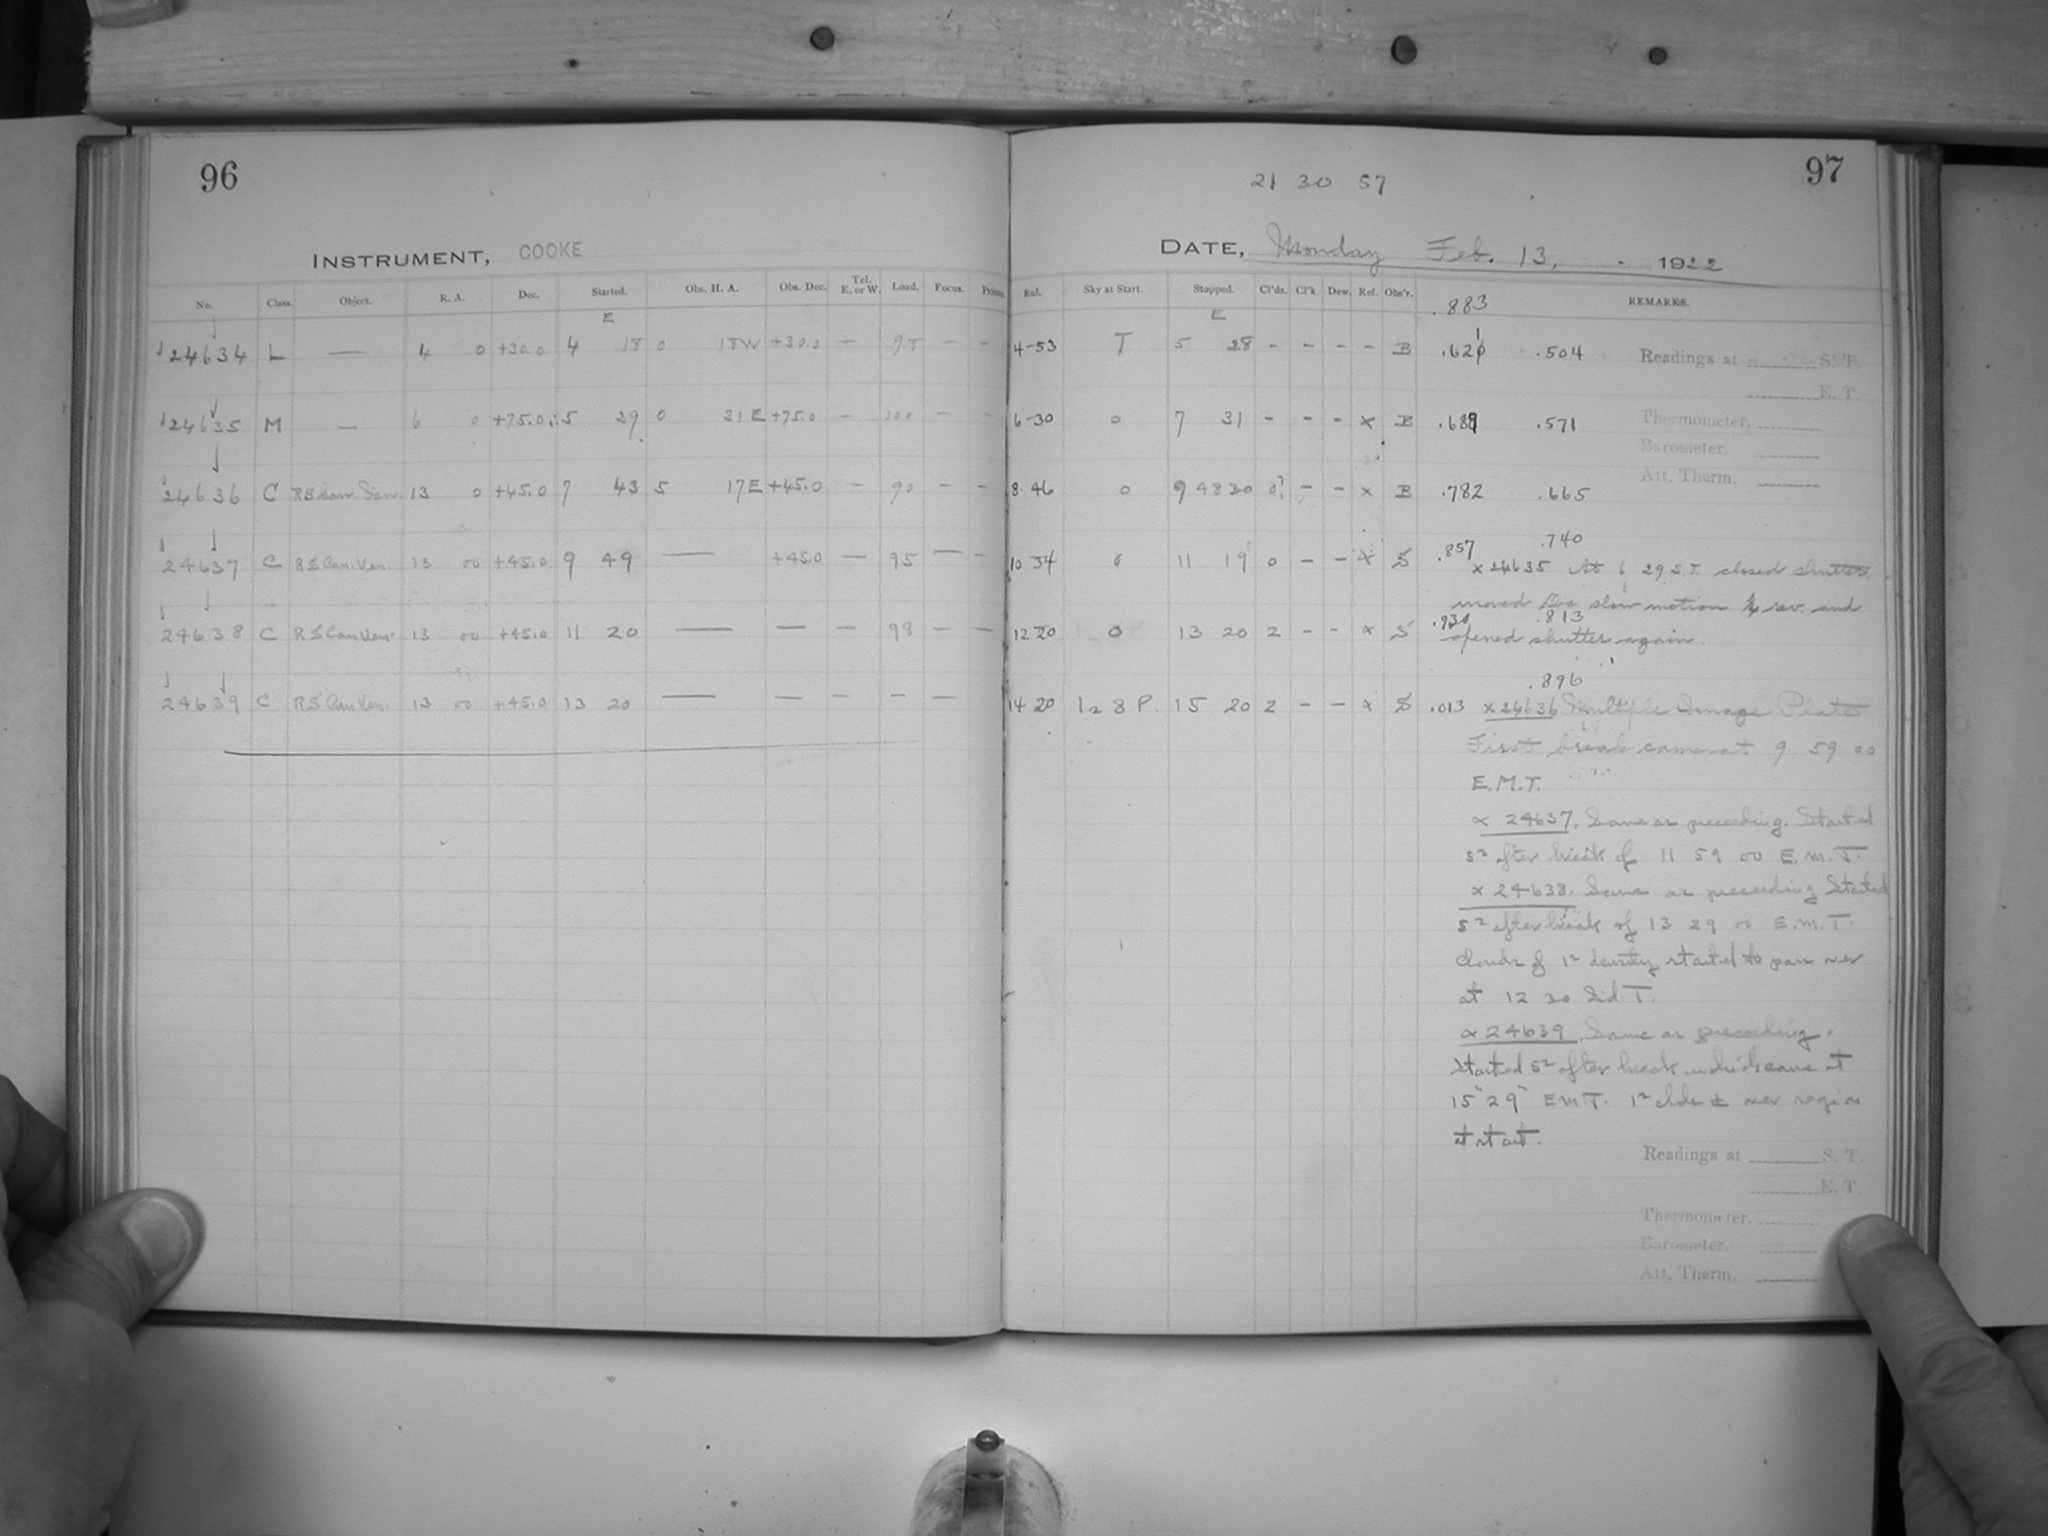 96
INSTRUMENT, COOKE
No. Class. Object. R. A. Dec. Started. Obs. H. A. Obs. Dec. Tel. E. or W. Load. Focus.
E
24634 L — 4 0 +30.0 4 18 0 18W +30.0 — 98 - -
24635 M — 6 0 +75.0 5 29 0 31 E +75.0 — 100 - -
24636 C 13 0 +45.0 7 43 5 17E +45.0 — 90 - -
24637 C RS Can. Ven. 13 00 +45.0 9 49 — +45.0 — 95 — -
24638 C RS Can Ven. 13 00 +45.0 11 20 — — — 98 — —
24639 C RS Can Ven. 13 00 +45.0 13 20 — — — — —
97
21 30 57
DATE, Monday Feb. 13, 1922
Sky at Start. Stopped. Cl'ds. Cl'k Dew. Ref. Obs'r. REMARKS.
E .883
4-53 T 5 28 - - - - B .504
6-30 0 7 31 - - - x B .571
8.46 0 9 48 30 0? - - x B .782 .665
10 34 0 11 19 0 - - x S .857 .740
12 20 0 13 20 2 - - x S .813
14 20 1₂ 8 P. 15 20 2 - - x S .013 .896
Readings at S. T.
E. T.
Thermometer.
Barometer.
Att. Therm.
x 24635 At 6 29 S.T. closed shutter
moved Dec slow motion ¼ rev. and
opened shutter again.
x 24636 Multiple Image Plate
First break came at 9 59 00
E.M.T.
x 24637. Same as preceeding. Started
5ˢ after break of 11 59 00 E.M.T.
x 24638. Same as preceeding Started
5ˢ after break of 13 29 00 E.M.T.
Clouds of 1ˢ density started to pass over
at 12 30 Sid. T.
x 24639. Same as preceeding.
Started 5ˢ after break which came at
15 29 E.M.T. over region
at start.
Readings at S. T.
E. T.
Thermometer.
Barometer.
Att. Therm.